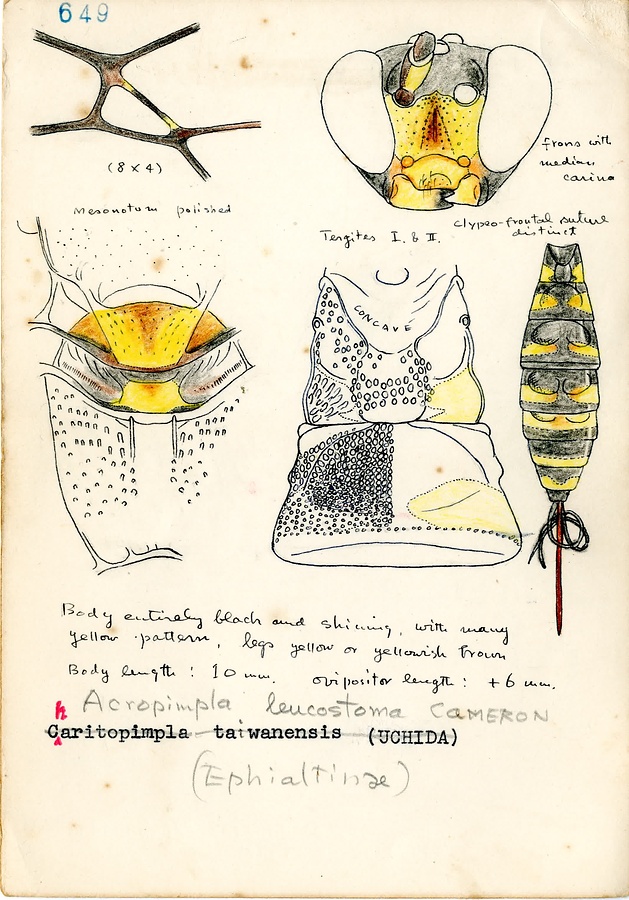 649
(8 x 4)
frons with
median
carina
Mesonotum polished
Tergites I. & II.
clypeo-frontal suture
distinct
CONCAVE
Body entirely black and shining, with many
yellow pattern, legs yellow or yellowish brown
Body length : 10 mm. ovipositor length : +6 mm.
Acropimpla leucostoma CAMERON
h
Caritopimpla taiwanensis (UCHIDA)
(Ephialtinae)